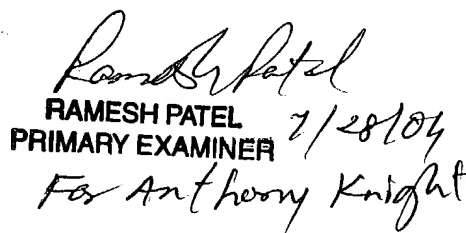 Ramesh Patel
RAMESH PATEL
PRIMARY EXAMINER 7/28/04
For Anthony Knight